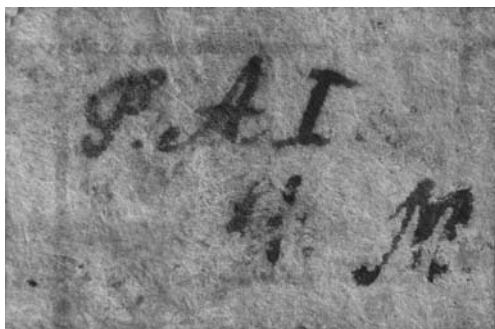 P. A. I.
M